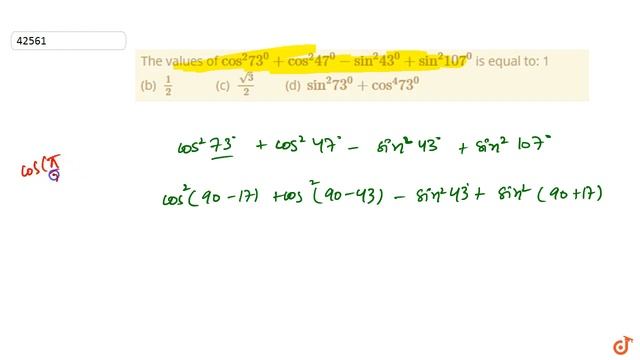 42561
The values of cos²73⁰ + cos²47⁰ − sin²43⁰ + sin²107⁰ is equal to: 1
(b) 1/2 (c) √3/2 (d) sin²73⁰ + cos⁴73⁰
cos² 73° + cos² 47° − sin² 43° + sin² 107°
cos(π
cos² (90 − 17) + cos² (90 − 43) − sin² 43 + sin² (90 + 17)